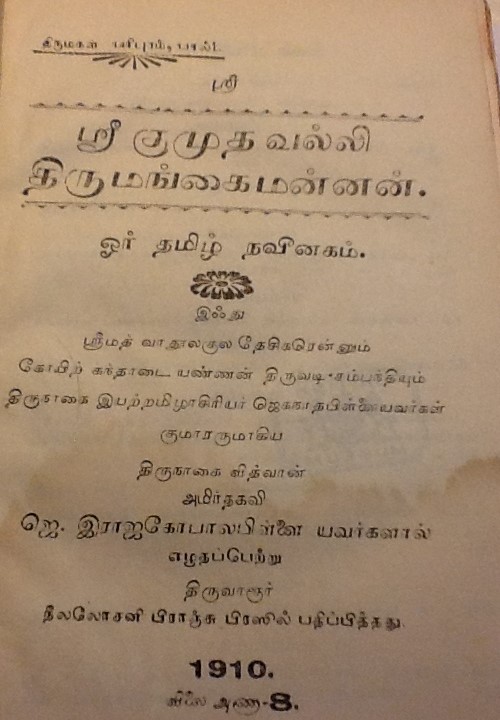 திருமகள்
ஸ்ரீ
ஸ்ரீ குமுதவல்லி
திருமங்கைமன்னன்.
ஓர் தமிழ் நவீனகம்.
இஃது
ஸ்ரீமத் வாதூலகுல தேசிகரென்னும்
கோயிற் கந்தாடை யண்ணன் திருவடி-சம்பந்தியும்
திருநாகை இயற்றமிழாசிரியர் ஜெகநாதபிள்ளையவர்கள்
குமாரருமாகிய
திருநாகை வித்வான்
அமிர்தகவி
ஜெ. இராஜகோபாலபிள்ளை யவர்களால்
எழுதப்பெற்று
திருவாரூர்
நீலலோசனி பிராஞ்சு பிரஸில் பதிப்பித்தது.
1910.
விலை அணா-8.